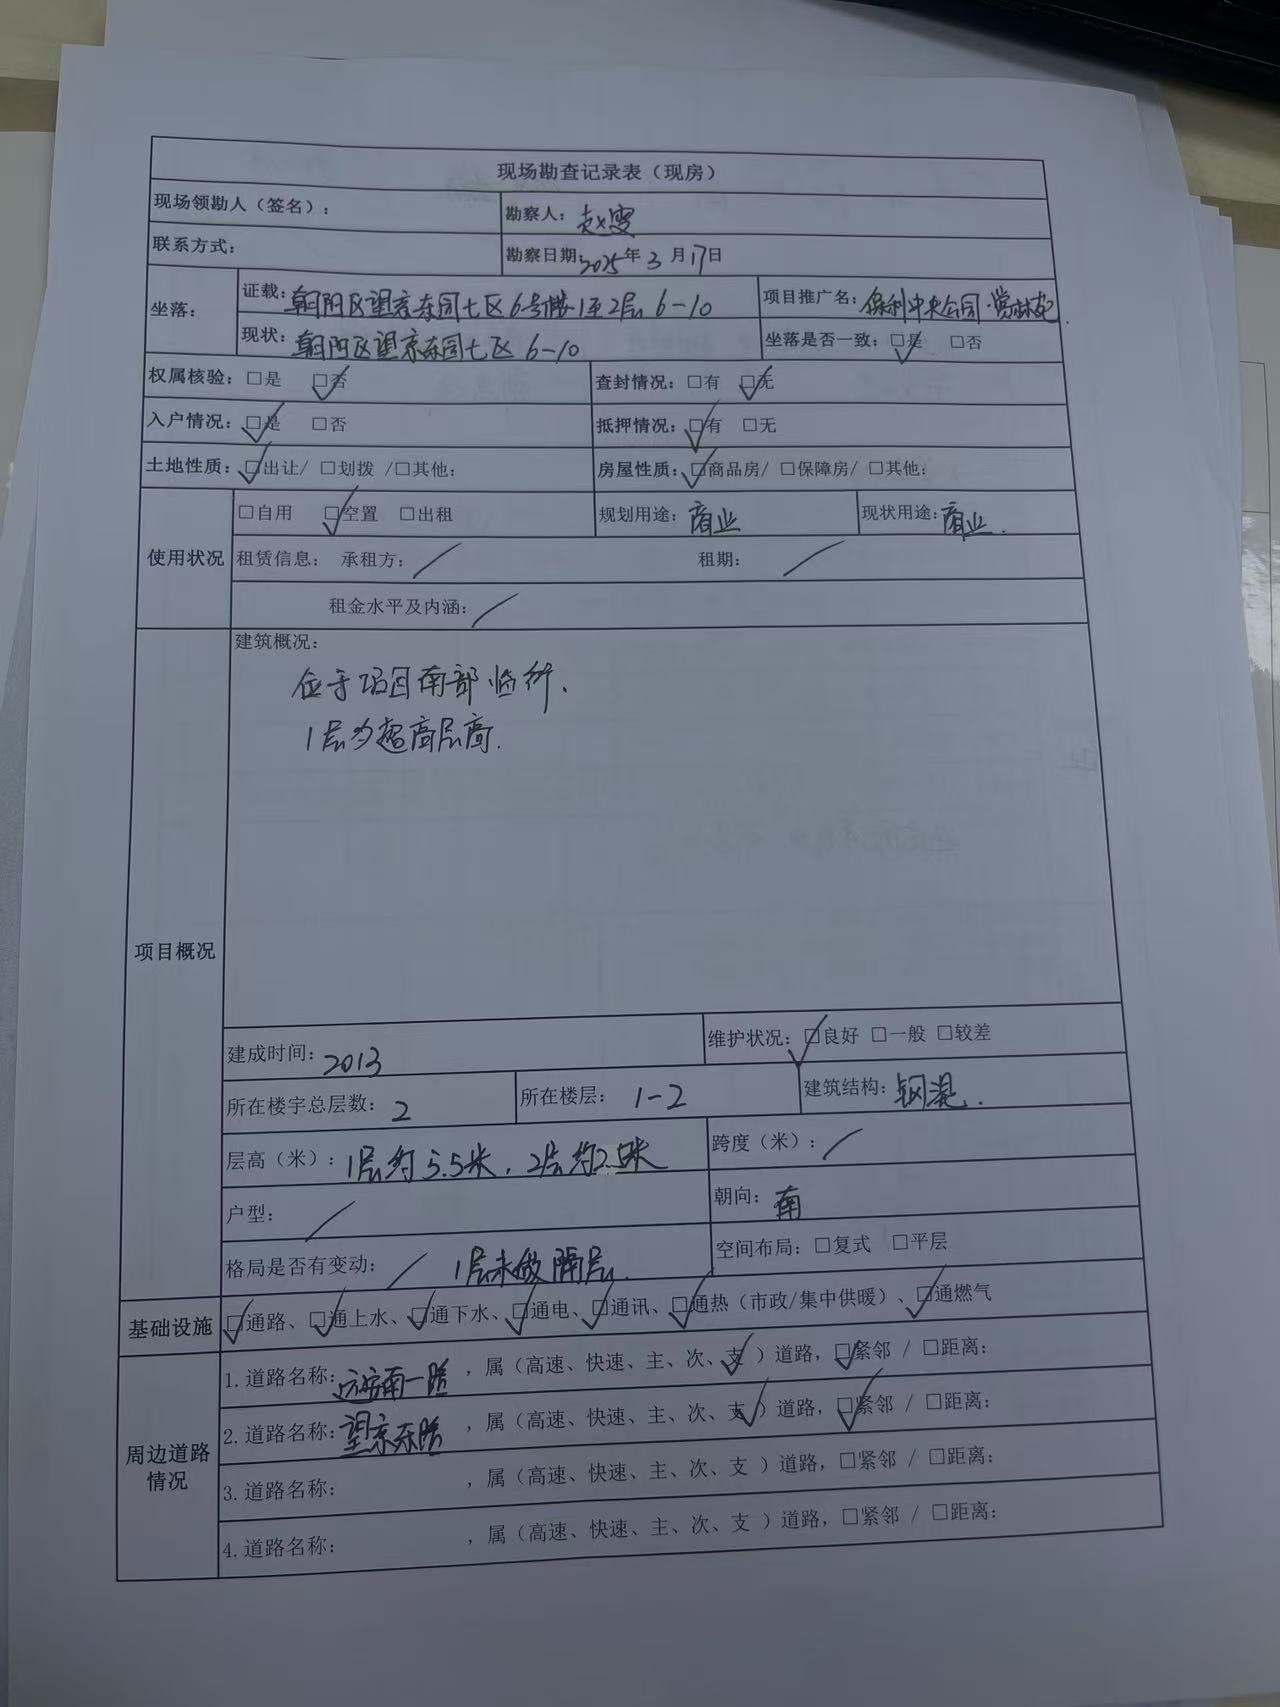 现场勘查记录表（现房）
现场领勘人（签名）： 勘察人：赵雯
联系方式： 勘察日期：2025年3月17日
坐落： 证载：朝阳区望京东园七区6号楼1至2层6-10 项目推广名：保利中央公园·
现状：朝阳区望京东园七区6-10 坐落是否一致：☑是 □否
权属核验：□是 ☑否 查封情况：□有 ☑无
入户情况：☑是 □否 抵押情况：☑有 □无
土地性质：☑出让/ □划拨 /□其他： 房屋性质：☑商品房/ □保障房/ □其他：
使用状况 □自用 ☑空置 □出租 规划用途：商业 现状用途：商业.
租赁信息： 承租方：／ 租期：／
租金水平及内涵：／
项目概况 建筑概况：
位于项目南部临街.
1层为超高层高.
建成时间：2013 维护状况：☑良好 □一般 □较差
所在楼宇总层数：2 所在楼层：1-2 建筑结构：钢混.
层高（米）：1层约5.5米，2层约2.5米 跨度（米）：／
户型：／ 朝向：南
格局是否有变动：／ 1层未做隔层. 空间布局：□复式 □平层
基础设施 ☑通路、☑通上水、☑通下水、☑通电、☑通讯、☑通热（市政/集中供暖）、☑通燃气
周边道路情况 1.道路名称：南一路，属（高速、快速、主、次、支✓）道路，☑紧邻 / □距离：
2.道路名称：望京东路，属（高速、快速、主、次、支✓）道路，☑紧邻 / □距离：
3.道路名称： ，属（高速、快速、主、次、支 ）道路，□紧邻 / □距离：
4.道路名称： ，属（高速、快速、主、次、支 ）道路，□紧邻 / □距离：